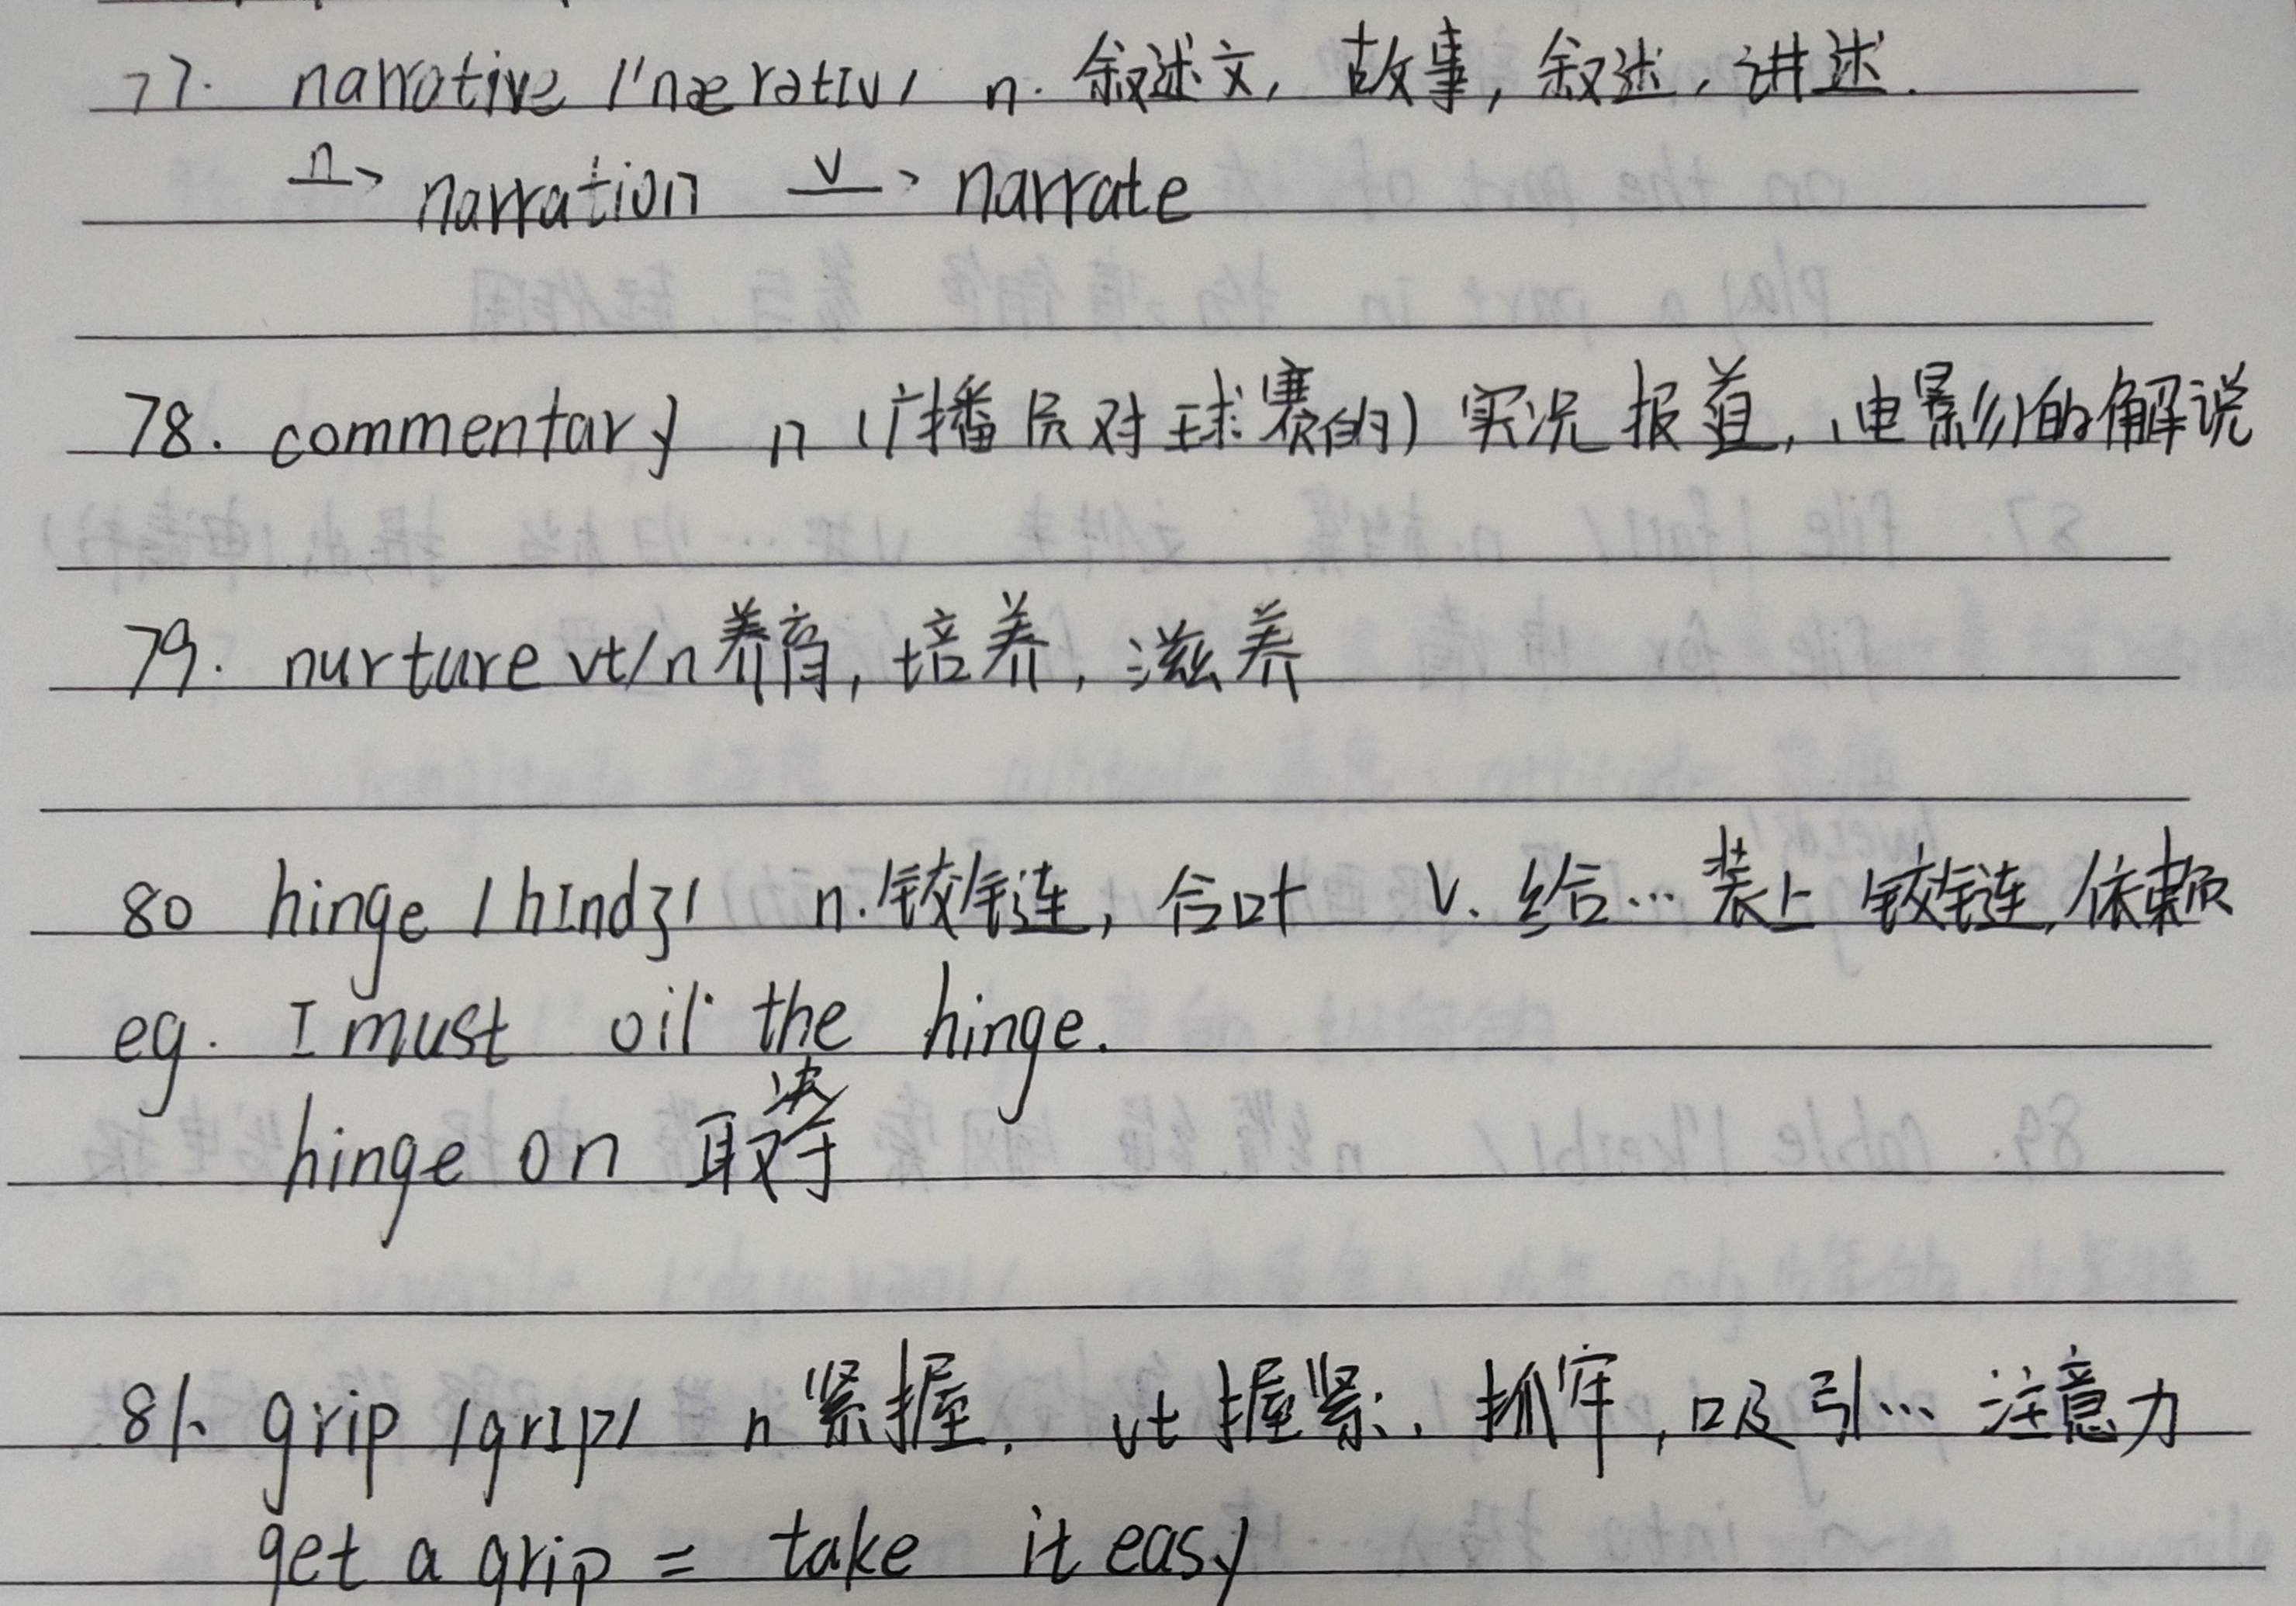 77. narrative /'nærətɪv/ n. 叙述文, 故事, 叙述, 讲述.
n→ narration v→ narrate
78. commentary n (广播员对球赛的) 实况报道, 电影的解说
79. nurture vt/n 养育, 培养, 滋养
80 hinge /hɪndʒ/ n. 铰链, 合叶 v. 给…装上铰链, 依赖
eg. I must oil the hinge.
hinge on 取决于
81. grip /grɪp/ n 紧握. vt 握紧, 抓牢, 吸引…注意力
get a grip = take it easy